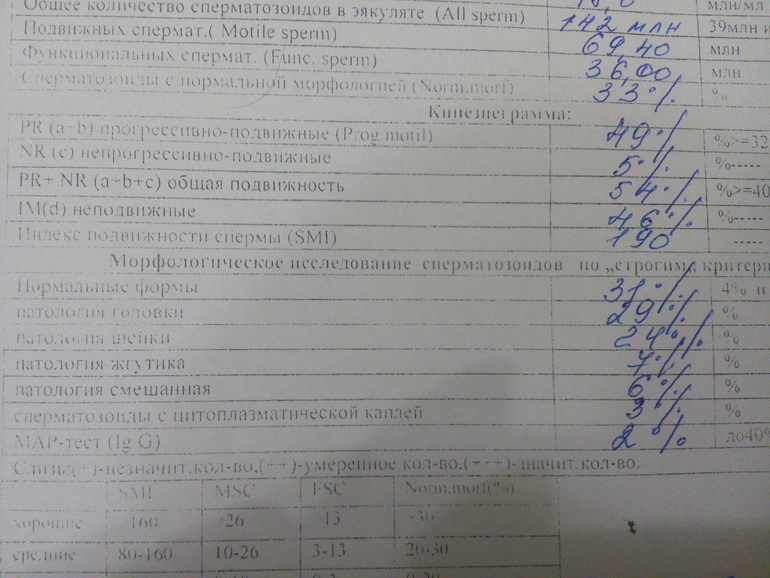 Общее количество сперматозоидов в эякуляте (All sperm) 142 млн 39млн и
Подвижных спермат.( Motile sperm) 69,40 млн
Функциональных спермат. (Func. sperm) 36,00 млн
Сперматозоиды с нормальной морфологией (Norm.morf) 33% %
Кинезиграмма:
PR (a+b) прогрессивно-подвижные (Prog.motil) 49% %>=32
NR (c) непрогрессивно-подвижные 5% %-----
PR+ NR (a+b+c) общая подвижность 54% %>=40
IM(d) неподвижные 46% %-----
Индекс подвижности спермы (SMI) 190 -----
Морфологическое исследование сперматозоидов по „строгим критери
Нормальные формы 31% 4% и
патология головки 29% %
патология шейки 24% %
патология жгутика 7% %
патология смешанная 6% %
сперматозоиды с цитоплазматической каплей 3% %
МАР-тест (Ig G) 2% до40%
Слизь:(+)-незначит.кол-во,(++)-умеренное кол-во,(+++)-значит.кол-во.
SMI MSC FSC Norm.morf(%)
хорошие 160 26 13 30
средние 80-160 10-26 3-13 20-30